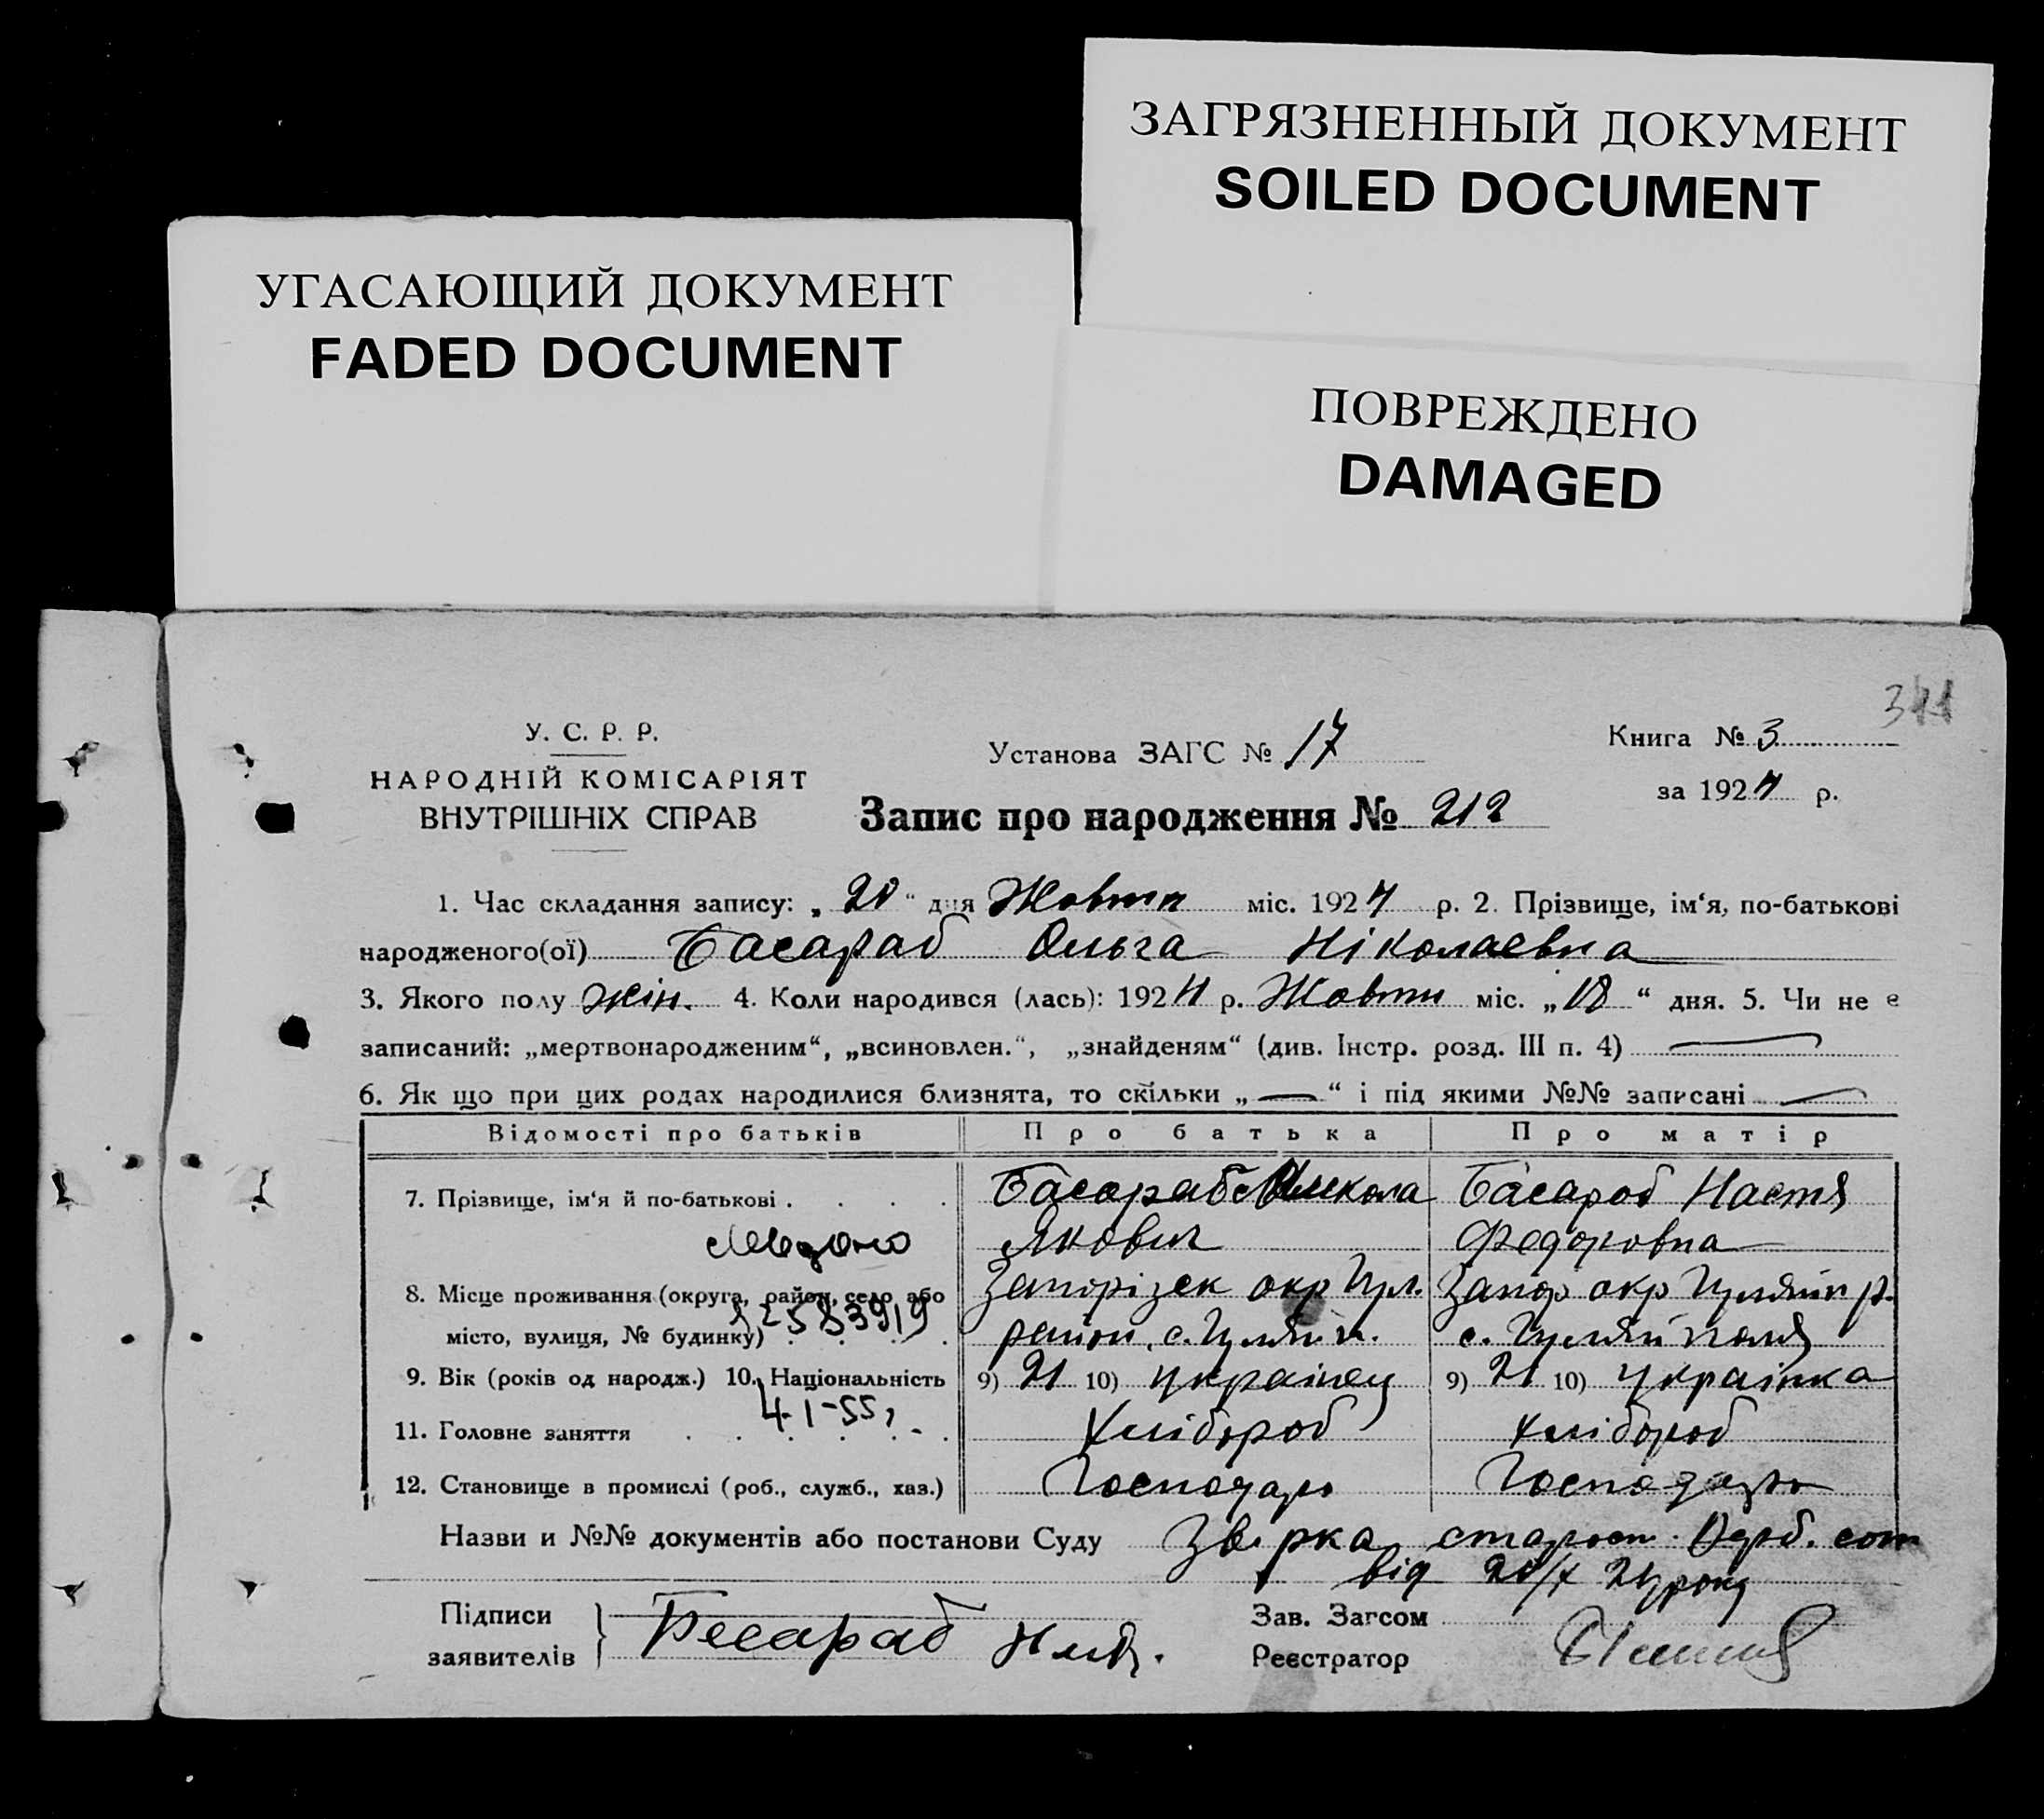 ЗАГРЯЗНЕННЫЙ ДОКУМЕНТ
SOILED DOCUMENT
УГАСАЮЩИЙ ДОКУМЕНТ
FADED DOCUMENT
ПОВРЕЖДЕНО
DAMAGED
У. С. Р. Р.
НАРОДНІЙ КОМІСАРІЯТ
ВНУТРІШНІХ СПРАВ
Установа ЗАГС № 17
Книга № 3
за 1924 р.
Запис про народження № 212
1. Час складання запису: „ 20 “ дня Жовтн міс. 1924 р. 2. Прізвище, ім‘я, по-батькові
народженого(ої) Басараб Ольга Ніколаевна
3. Якого полу жін. 4. Коли народився (лась): 1924 р. Жовтн міс. „ 18 “ дня. 5. Чи не є
записаний: „мертвонародженим“, „всиновлен.“, „знайденям“ (див. Інстр. розд. III п. 4)
6. Як що при цих родах народилися близнята, то скільки „ — “ і під якими №№ записані —
Відомості про батьків Про батька Про матір
7. Прізвище, ім‘я й по-батькові . . . . Басараб Микола Басараб Настя
Якович Федоровна
8. Місце проживання (округа, район, село або Запорізск окр Гул. Запор окр Гуляйп р.
місто, вулиця, № будинку) . . . район, с. Гуляй п. с. Гуляй поля
9. Вік (років од народж.) 10. Національність 9) 21 10) українец 9) 21 10) українка
4-I-55,
11. Головне заняття . . . . . . Хлібороб Хлібороб
12. Становище в промислі (роб., служб., хаз.) Господарь Господарь
Назви и №№ документів або постанови Суду Звірка старост.
від 20/X 24 року
Підписи
заявителів } Бесараб
Зав. Загсом
Реєстратор